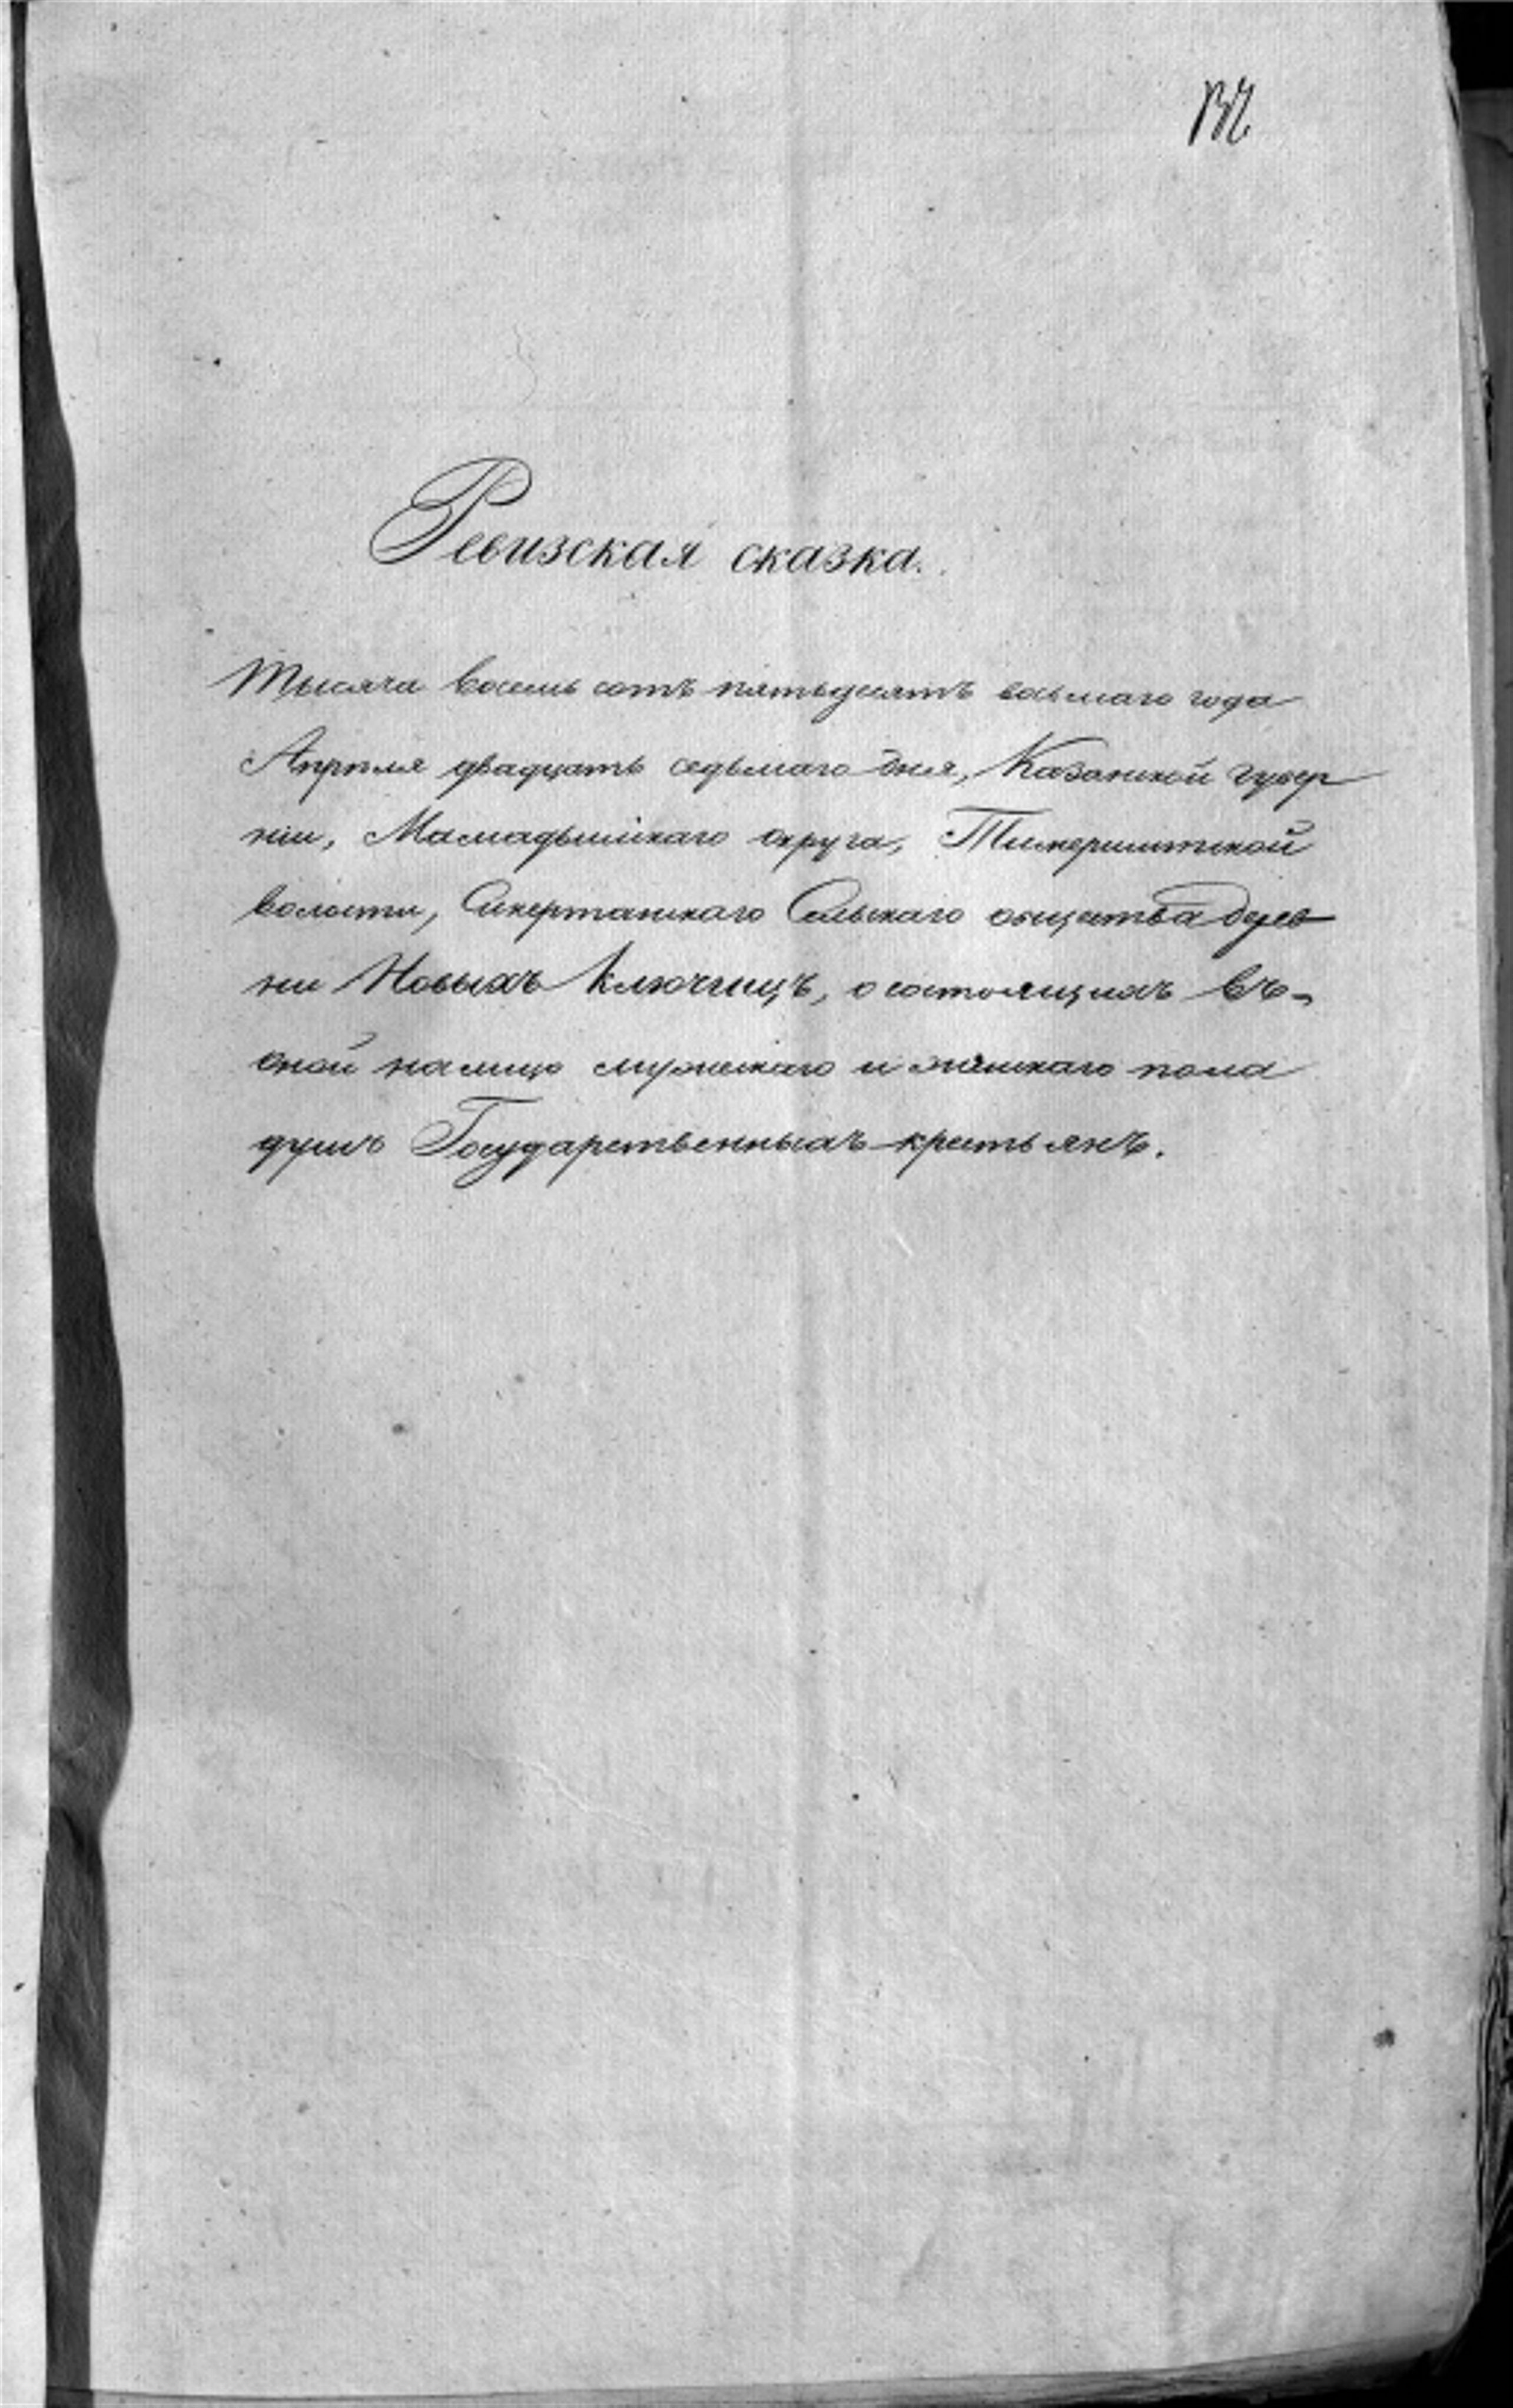 132
Ревизская сказка.
Тысяча восемь сотъ пятьдесятъ восьмаго года
Апрѣля двадцать седьмаго дня, Казанской губер
ніи, Мамадышскаго округа,
волости, Сикертанскаго Сельскаго общества дерев
ни Новыхъ Ключищъ, о состоящихъ въ
оной на лицо мужескаго и женскаго пола
душъ Государственныхъ крестьянъ.